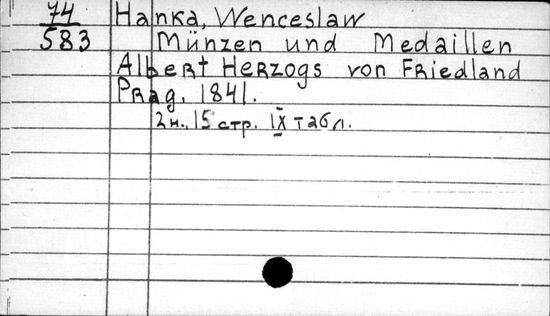 74 Hanka, Wenceslaw
583 Münzen und Medaillen
Albert Herzogs von Friedland
Prag, 1841.
2н., 15 стр. IX табл.